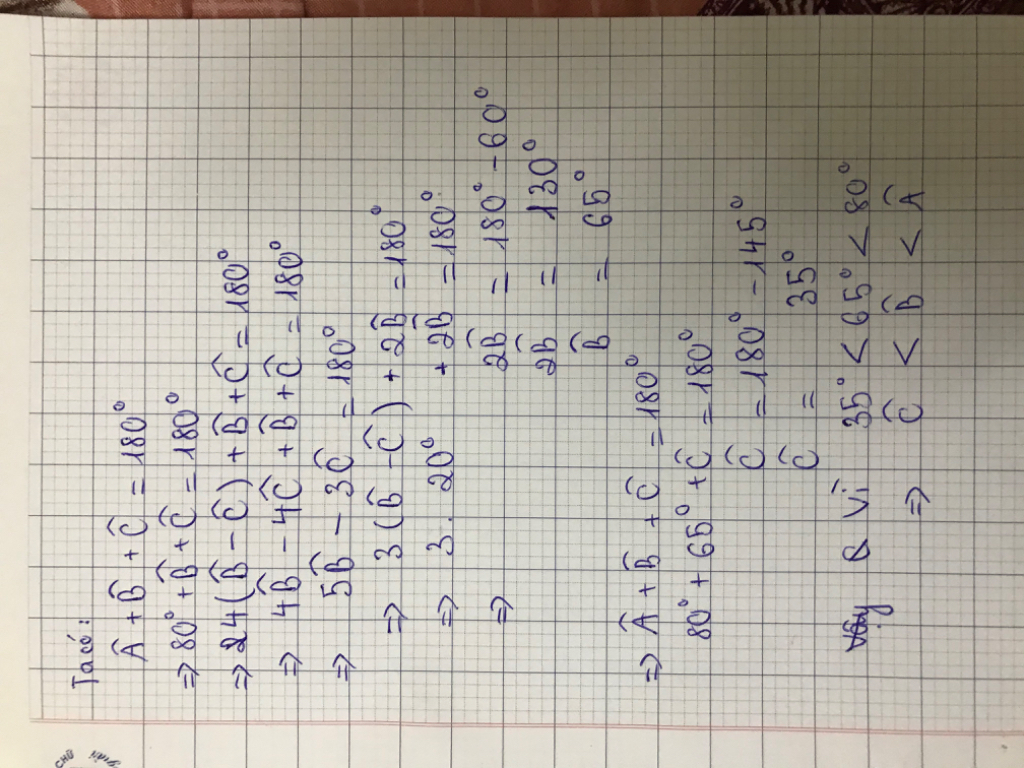 Ta có:
Â + B̂ + Ĉ = 180°
⇒ 80° + B̂ + Ĉ = 180°
⇒ 24(B̂ - Ĉ) + B̂ + Ĉ = 180°
⇒ 4B̂ - 4Ĉ + B̂ + Ĉ = 180°
⇒ 5B̂ - 3Ĉ = 180°
⇒ 3(B̂ - Ĉ) + 2B̂ = 180°
⇒ 3. 20° + 2B̂ = 180°
⇒ 2B̂ = 180° - 60°
2B̂ = 130°
B̂ = 65°
⇒ Â + B̂ + Ĉ = 180°
80° + 65° + Ĉ = 180°
Ĉ = 180° - 145°
Ĉ = 35°
Vì 35° < 65° < 80°
⇒ Ĉ < B̂ < Â